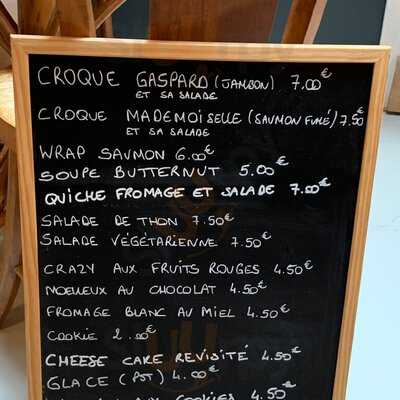 CROQUE GASPARD (JAMBON) 7.00€
ET SA SALADE
CROQUE MADEMOISELLE (SAUMON FUMÉ) 7.50€
ET SA SALADE
WRAP SAUMON 6.00€
SOUPE BUTTERNUT 5.00€
QUICHE FROMAGE ET SALADE 7.00€
SALADE DE THON 7.50€
SALADE VÉGÉTARIENNE 7.50€
CRAZY AUX FRUITS ROUGES 4.50€
MOELLEUX AU CHOCOLAT 4.50€
FROMAGE BLANC AU MIEL 4.50€
COOKIE 2.00€
CHEESE CAKE REVISITÉ 4.50€
GLACE (POT) 4.00€
COOKIES 4.50€